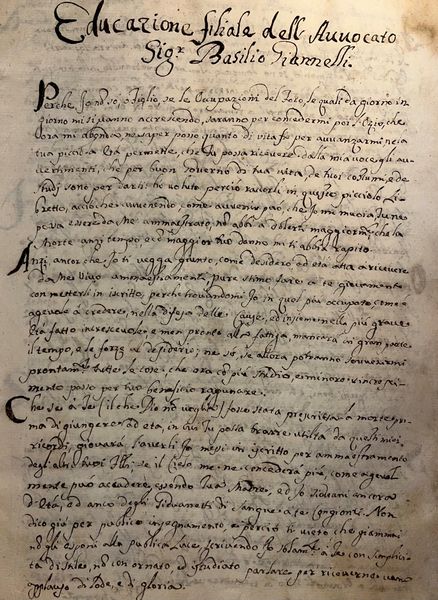 Educazione filiale dell Avvocato
Sig.r Basilio Giannelli.
Perche Jo nō so, ò figlio, se le Occupazioni del Foro, le quali da giorno in
giorno mi si vanno accrescendo, saranno per concedermi poi l'ozio, che
ora mi abonda, ne saper posso quanto di vita fia per avvanzarmi; e la
tua picciola età permette, che tu possa ricevere dalla mia voce gli av
vertimenti, che per buon governo di tua vita, de tuoi costumi, e de
studj sono per darti: hò voluto perciò raccorli in questo picciolo Li
bretto, acciòche avvenendo, come avvenir può, che Jo me muoia, tu nō
possa essere da me ammaestrato, nō abbi à dolerti maggiorm.te che la
Morte anzi tempo, e cō maggior tuo danno mi ti abbia rapito.
Anzi ancor che Jo ti vegga giunto, come desidero ad età atta à ricevere
da me vivo ammaestramenti, pure stimo fare a te giovamento
con metterli in iscritto, perche trovandomi Jo in quel poi occupato, come è
agevole à credere, nella difesa delle Cause, ed insieme nella più grave
Età fatto increscevole, e men pronto alla fatiga, mancarà in gran parte
il tempo, e le forze al desiderio; ne só, se allora potranno sovvenirmi
prontam.te tutte le cose, che ora cō più studio, e minore rincresci
mento posso per tuo beneficio raunare.
Che se à te (il che Dio nō voglia) fosse stata prescritta la morte pri
ma di giungere ad età, in cui tu possa trarre utilità da questi miei
ricordi, giovarà l'averli Jo messi in iscritto per ammaestramento
degli altri tuoi Fr̄lli, se il Cielo me ne concederà più, come agevol
mente può accadere, essendo tua Madre, ed Jo Giovani ancora
d'età, ed anco degli Giovanetti di sangue à te congionti. Non
dico già per publico insegnamento, e perciò ti vieto che giammai
nō gli esponi alla publica luce, scrivendo Jo solam.te à te con semplici
tà di stile, nō con ornato, ed istudiato parlare per riceverne vano
applauso di lode, e di gloria.